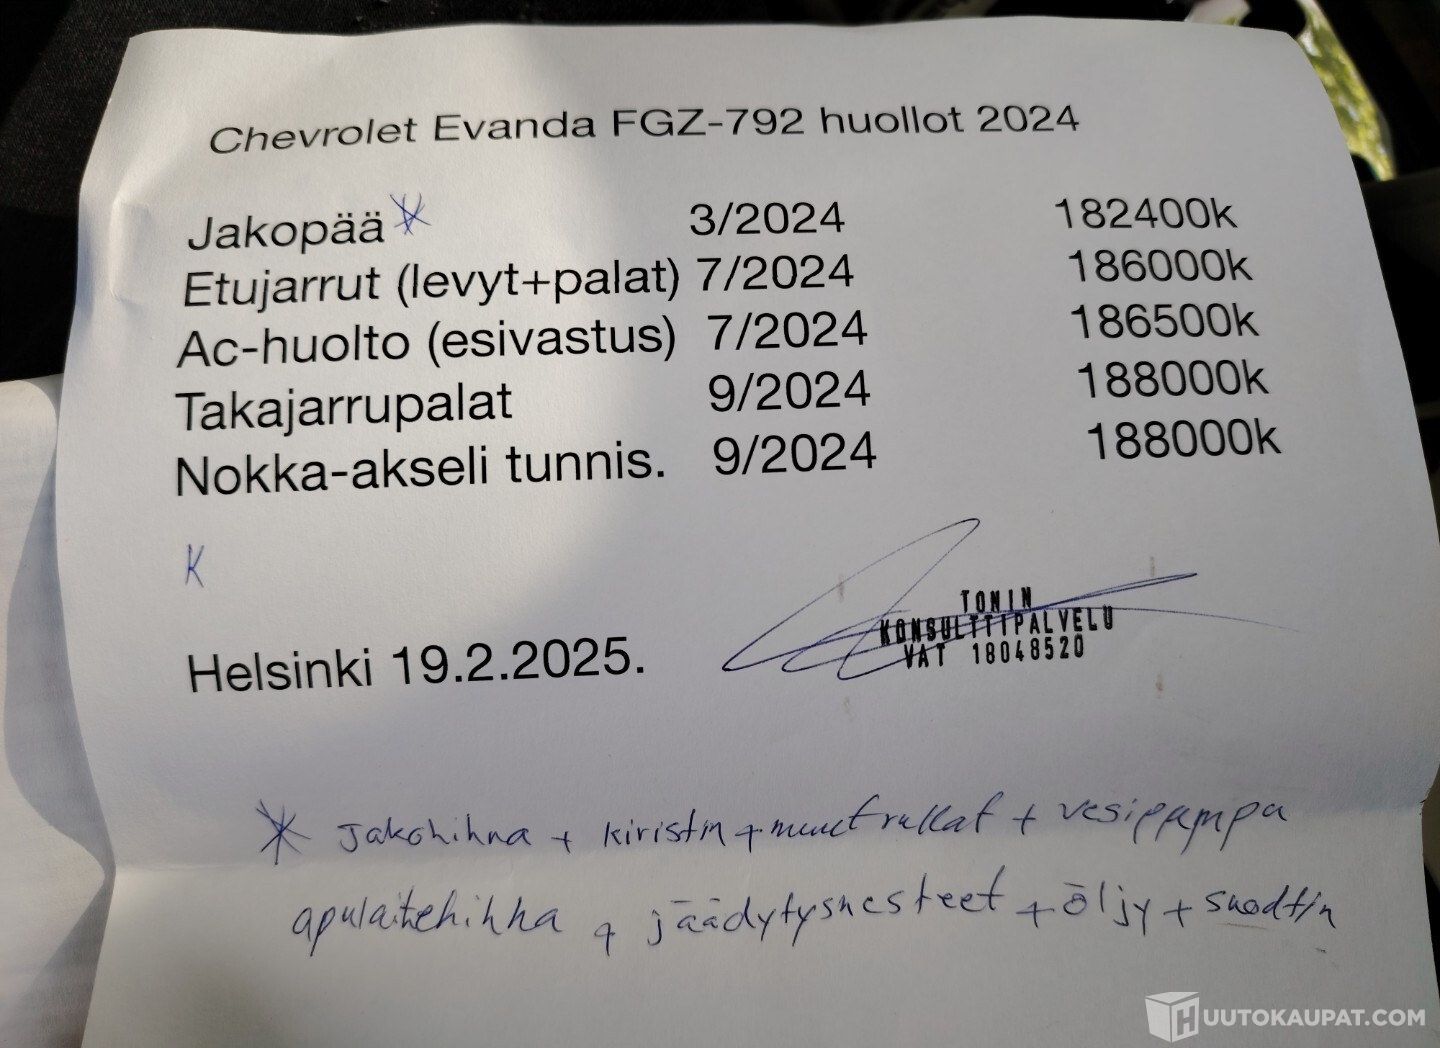 Chevrolet Evanda FGZ-792 huollot 2024
Jakopää * 3/2024 182400k
Etujarrut (levyt+palat) 7/2024 186000k
Ac-huolto (esivastus) 7/2024 186500k
Takajarrupalat 9/2024 188000k
Nokka-akseli tunnis. 9/2024 188000k
K
TONIN
KONSULTTIPALVELU
VAT 18048520
Helsinki 19.2.2025.
* Jakohihna + kiristin + muut rullat + vesipumpa
apulaitehihna + jäädytysnesteet + öljy + suodtin
HUUTOKAUPAT.COM